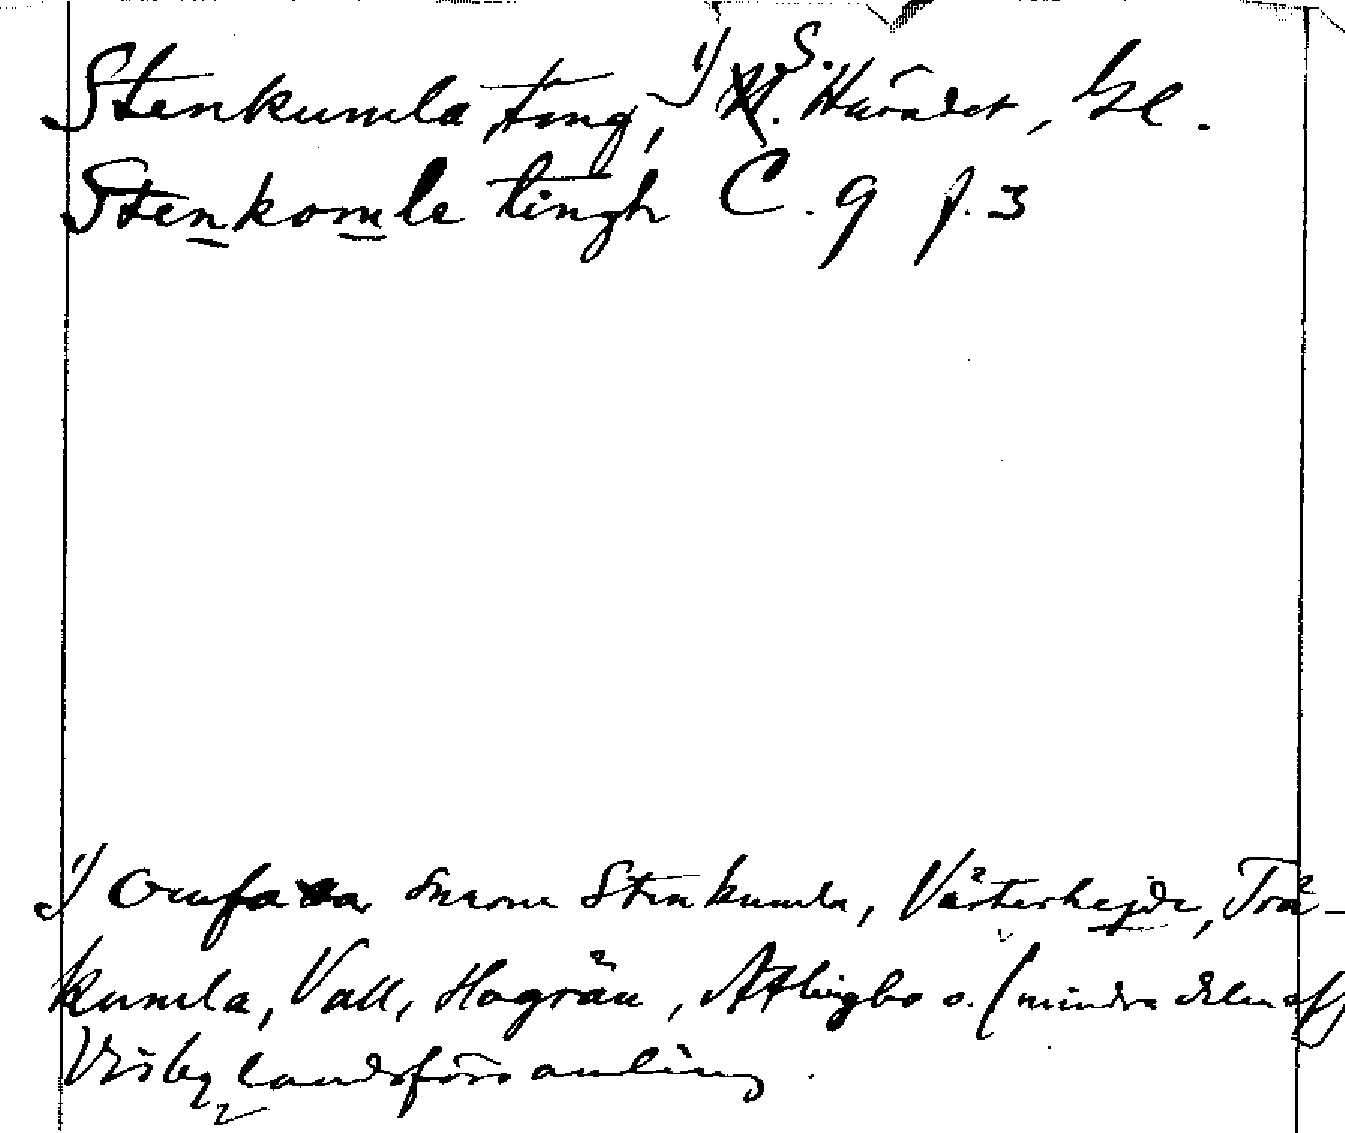 Stenkumla ting, 1) S. Häradet, Gl.
Stenkomle tingh C. 9 f. 3
1) Omfattar socknarna Stenkumla, Västerhejde, Trä-
kumla, Vall, Hogrän, Atlingbo o. (mindre delen af)
Visby landsförsamling.